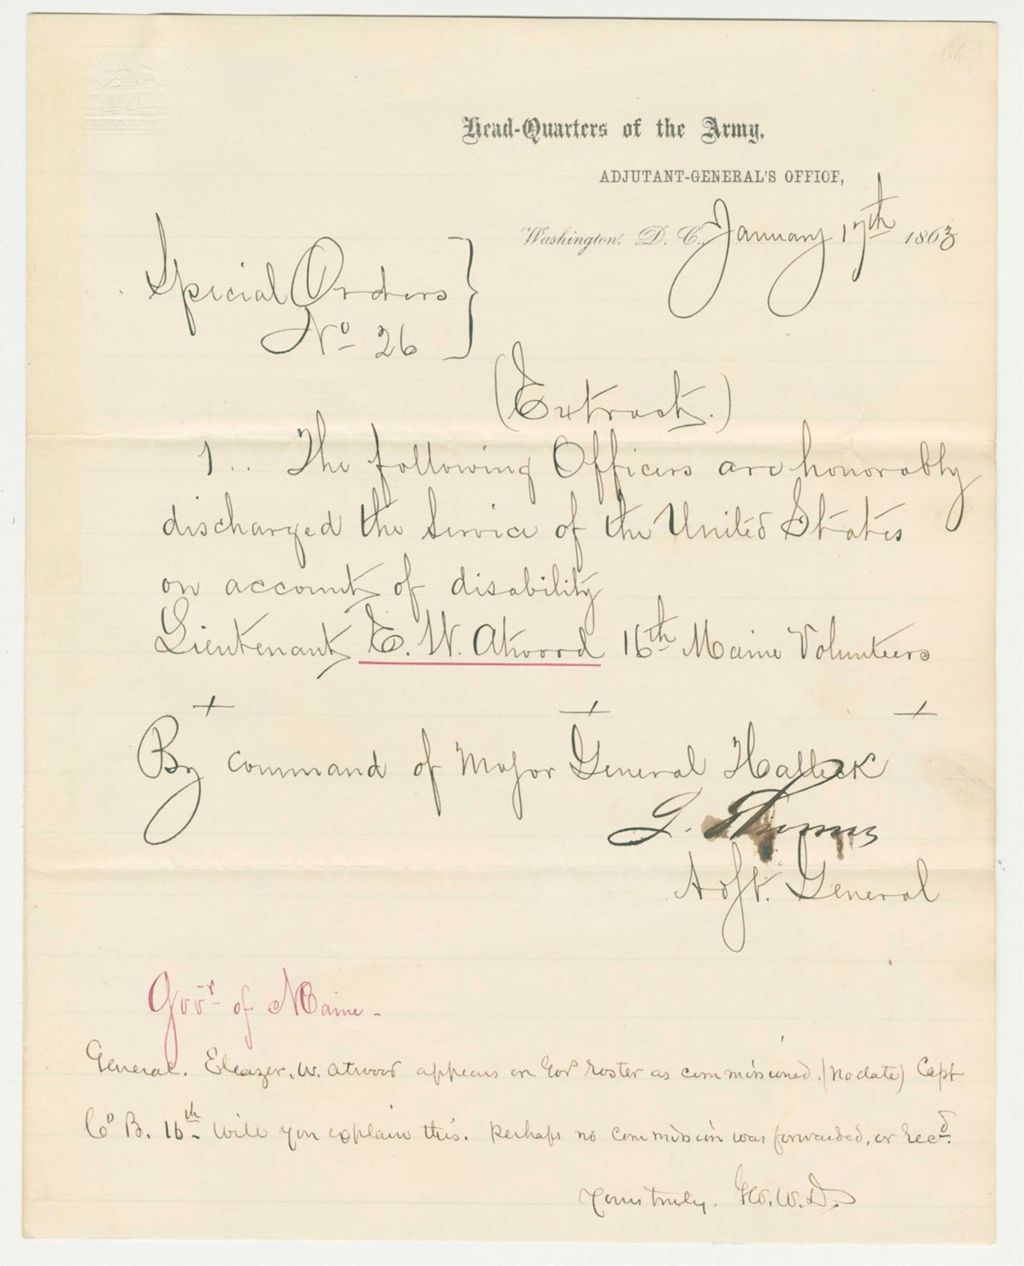 Head-Quarters of the Army,
ADJUTANT-GENERAL'S OFFICE,
Washington, D. C., January 17th 1863
Special Orders }
No 26
(Extract.)
1.. The following Officers are honorably
discharged the service of the United States
on account of disability
Lieutenant E. W. Atwood 16th Maine Volunteers
+ + +
By command of Major General Halleck
L. Thomas
Adjt. General
Govr of Maine -
General. Eleazer. W. Atwood appears on Gov roster as commissioned. (No date) Capt
Co B. 16th. Will you explain this. Perhaps no commission was forwarded, or Recd.
Yours truly. W. D.